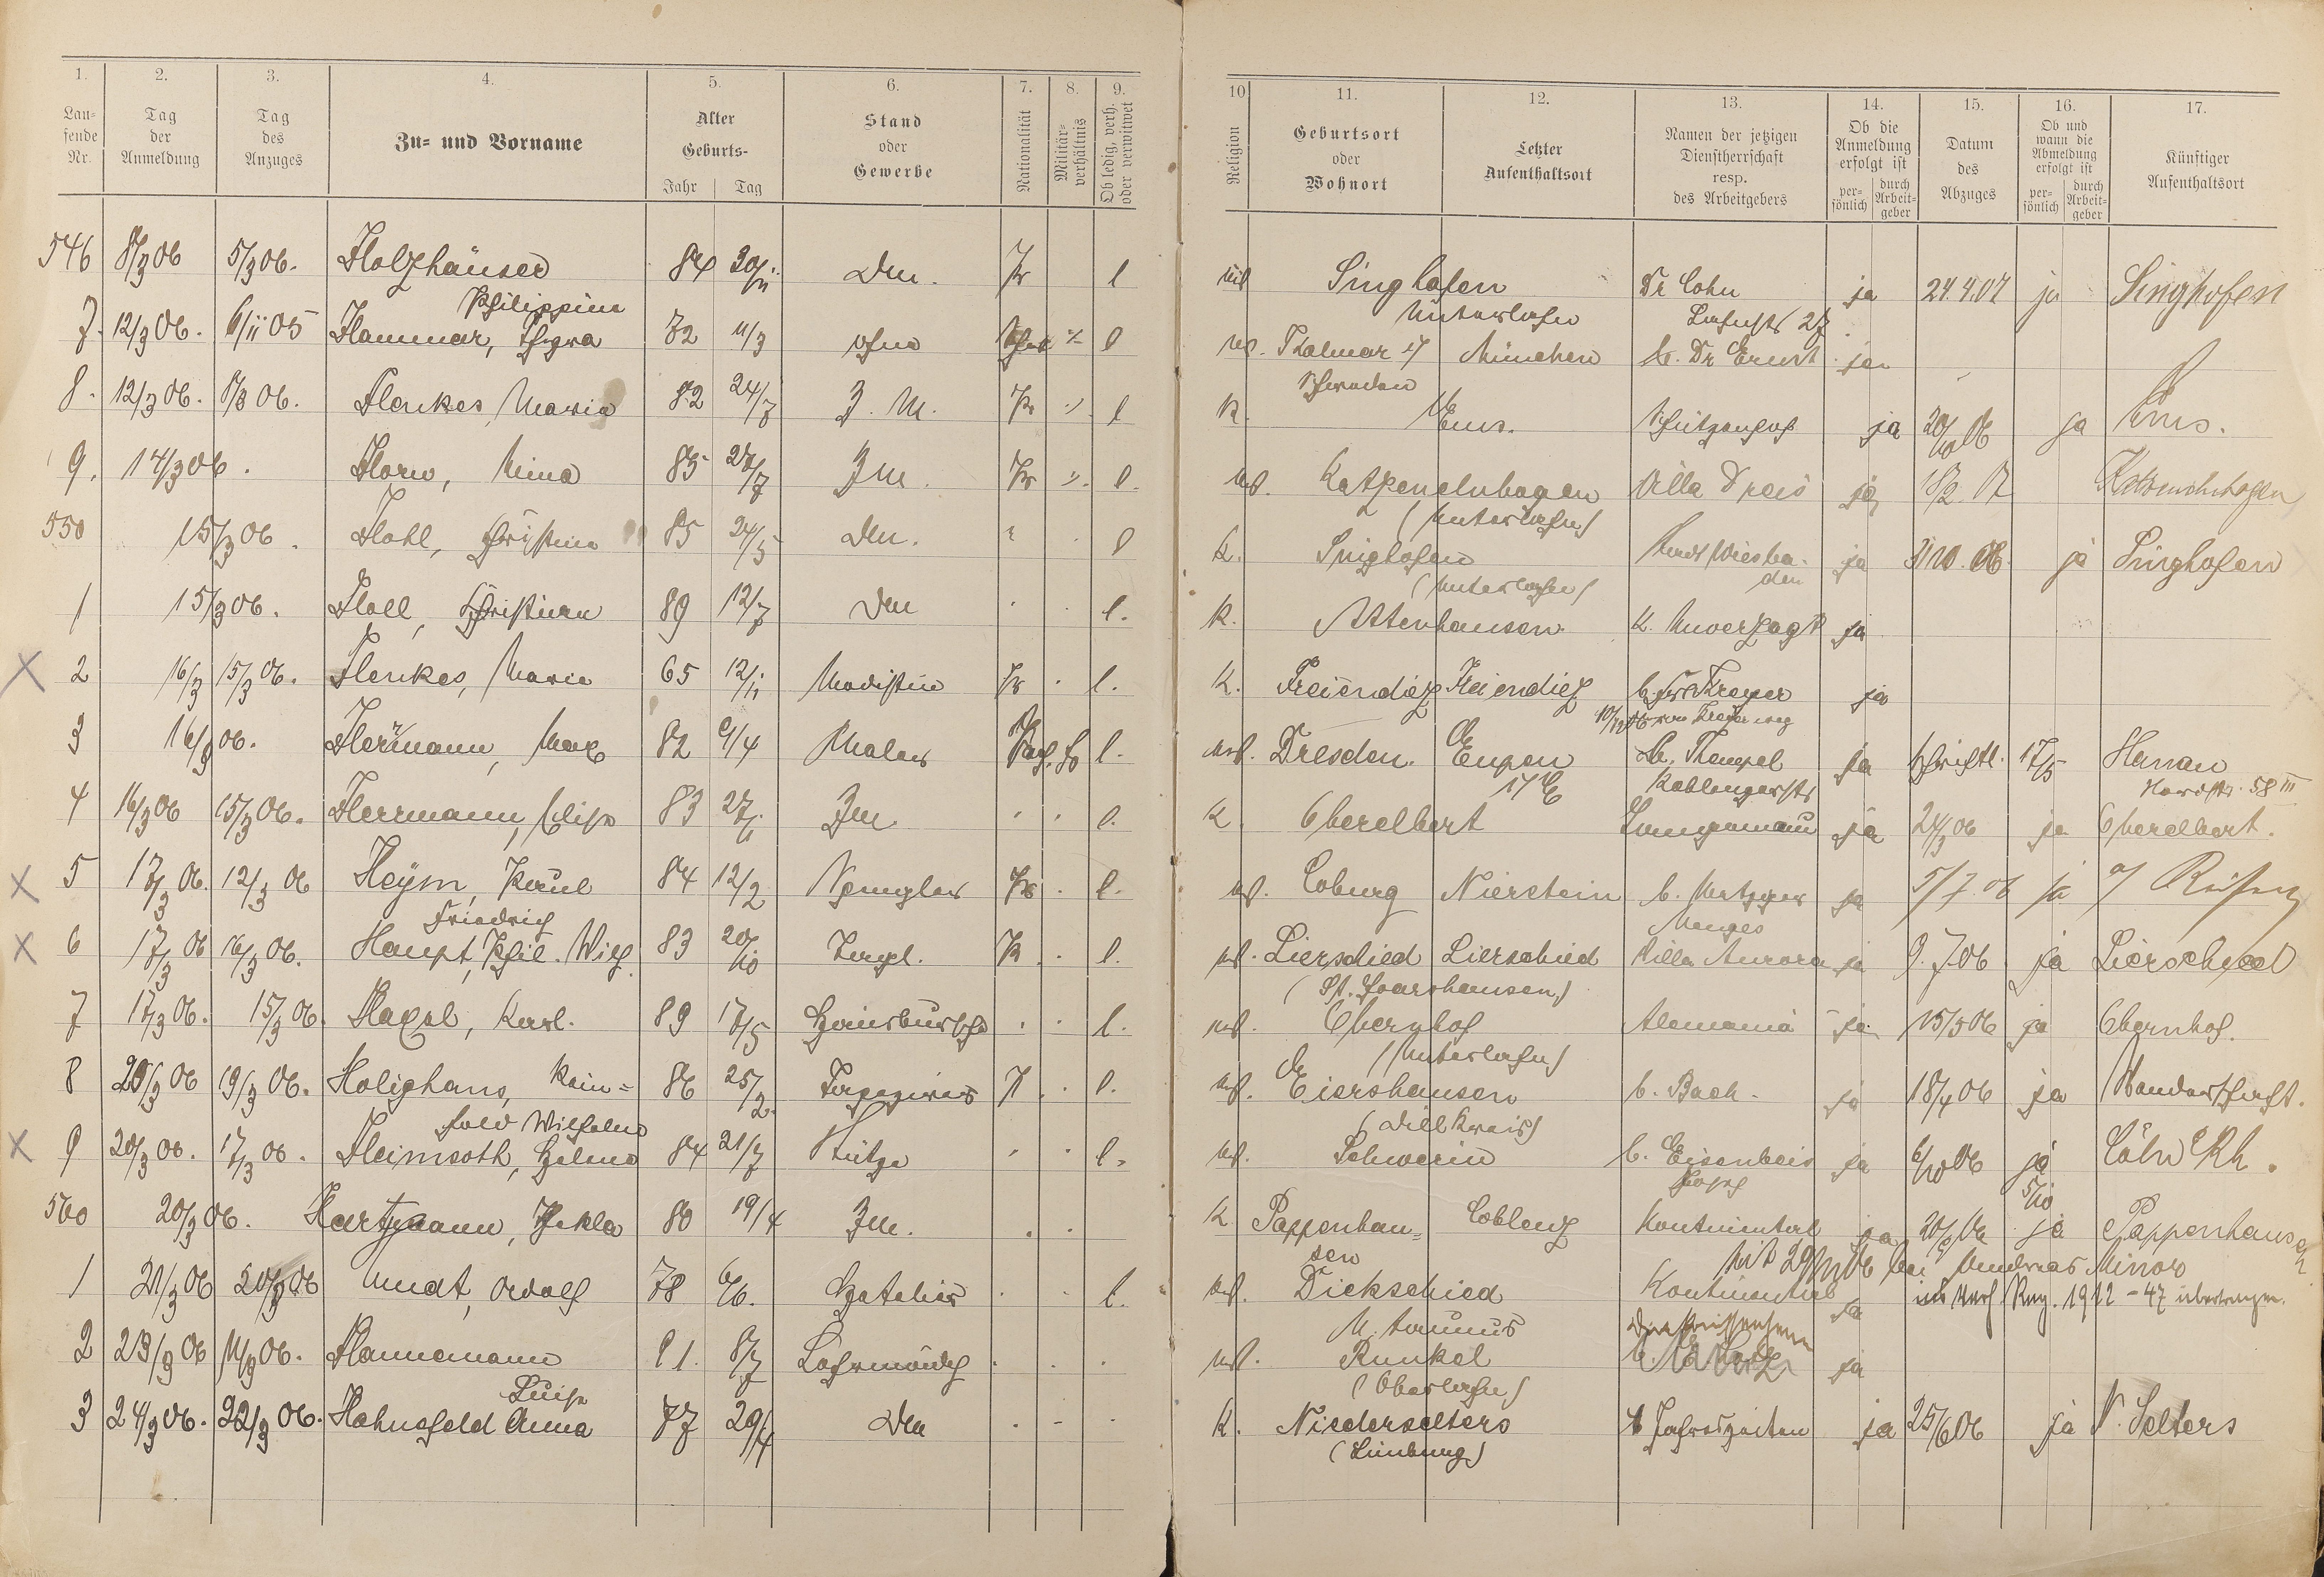 1. 2. 3. 4. 5. 6. 7. 8. 9.
Lau-
fende
Nr.
Tag
der
Anmeldung
Tag
des
Anzuges
Zu- und Vorname
Alter
Geburts-
Jahr Tag
Stand
oder
Gewerbe
Nationalität
Militär-
verhältnis
Ob ledig, verh.
oder verwitwet
10 11. 12. 13. 14. 15. 16. 17.
Religion
Geburtsort
oder
Wohnort
Letzter
Aufenthaltsort
Namen der jetzigen
Dienstherrschaft
resp.
des Arbeitgebers
Ob die
Anmeldung
erfolgt ist
per-
sönlich
durch
Arbeit-
geber
Datum
des
Abzuges
Ob und
wann die
Abmeldung
erfolgt ist
per-
sönlich
durch
Arbeit-
geber
Künftiger
Aufenthaltsort
546 8/3 06 5/3 06. Holzhäuser 84 30/11 Dm. Pr l
Philippine
Singhofen Dr Cohn ja 24.4.07 ja Singhofen
Unterlahn
7. 12/3 06. 6/11 05 Hammar, 72 11/3 ohne l
Kalmar München b. Dr Ernst ja
Schweden
8. 12/3 06. 8/3 06. Henkes, Maria 82 24/7 Z. M. Pr l
K. Ems. Schützenhof ja 20/10 06 ja Ems.
9. 14/3 06. Horn, Mina 85 Zm. Pr l.
Katzenelnbogen Villa Dreis ja 18/2. 07 Katzenelnbogen
(Unterlahn)
550 15/3 06. Hohl, Christine 85 24/5 Dm. l
K. Singhofen Stadt Wiesba- ja 31 10. 06. ja Singhofen
den
(Unterlahn)
1 15/3 06. Holl, Christian 89 12/7 Dm l.
K. Attenhausen. K. Unverzagt ja
X 2 16/3 15/3 06. Henkes, Maria 65 12/11 Modistin Pr l.
K. Freiendiez Freiendiez b. Frl Kreyer ja
3 16/3 06. Herrmann, Max 82 9/4 Maler l.
Dresden. Eupen ja schriftl. 17/5 Hanau
Koblenzerstr 58 III
4 16/3 06 15/3 06. Herrmann, Elise 83 Zm. l.
K. Oberelbert Lungemann ja 24/3 06 ja Oberelbert.
X 5 17/3 06. 12/3 06 Heym, Paul 84 12/2 Spengler Pr l.
Coburg Nierstein b. Metzger ja 5/7. 06 ja a/ Reisen
Menges
Friedrich
X 6 17/3 06 16/3 06. Haupt, Phil. Wilh. 83 20/10 l.
Lierschied Lierschied Villa Aurora ja 9. 7. 06 ja Lierschied
(St. Goarshausen)
7 17/3 06. 15/3 06. Haxel, Karl. 89 17/5 Hausbursche l.
Obernhof Alemania ja 15/5 06 ja Obernhof.
(Unterlahn)
8 20/3 06 19/3 06. Holighaus, Rein= 86 25/2. Tapezierer l.
hold Wilhelm
Eiershausen b. Bach. ja 18/4 06 ja Wanderschaft.
(Dillkreis)
X 9 20/3 06. 17/3 06. Heimsoth, Helene 84 21/7 Stütze l.
Schwerin b. Eisenbeis ja 6/10 06 ja Cöln a Rh.
5/10
560 20/3 06. Hartmann, Thekla 80 19/4 Zm.
K Pappenhau= Coblenz Kontinental ja 20/9 06 ja Pappenhausen
sen
1 21/3 06 20/3 06 Mudt, Adolf 78 6/6. Hoteldr l.
Dickschied Kontinental ja
Seit 29/11 06 bei Andreas Minor
ins Reg. 1922-47 übertragen.
2 23/3 06 11/3 06. Hannemann 91. 8/7 Lehrmädch
Luise
Runkel ja
(Oberlahn)
3 24/3 06. 22/3 06. Hahnsfeld Anna 77 29/4 Dm
K. Niederselters 4 Jahreszeiten ja 25/6 06 ja N. Selters
(Limburg)